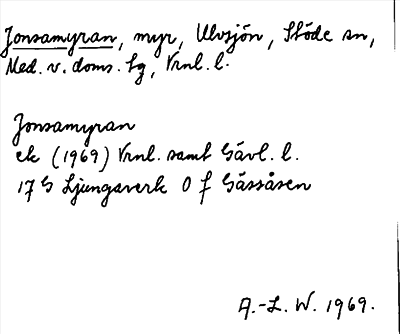 Jonsamyran, myr, Ulvsjön, Stöde sn,
Med. v. doms. sg, Vrnl. l.
Jonsamyran
ek (1969) Vrnl. samt Gävl. l.
17 G Ljungaverk 0 f Gässåsen
A.-L. W. 1969.